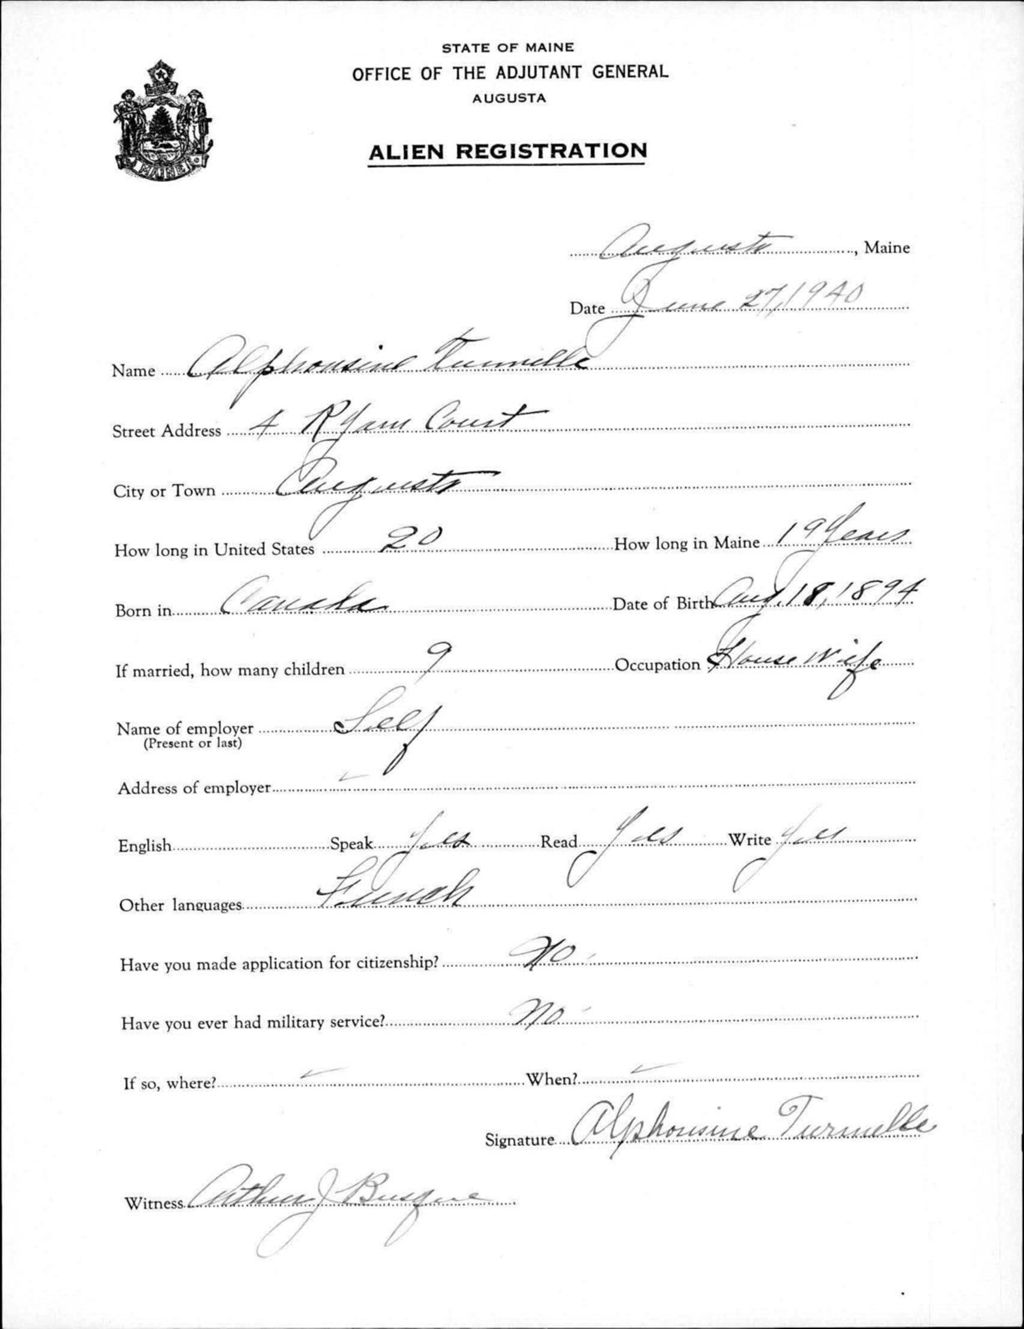 STATE OF MAINE
OFFICE OF THE ADJUTANT GENERAL
AUGUSTA
ALIEN REGISTRATION
MAINE
Augusta, Maine
Date June 27, 1940
Name Alphonsine Turmelle
Street Address 4 Court
City or Town Augusta
How long in United States 20 How long in Maine 19 Years
Born in Canada Date of Birth Aug. 18, 1894
If married, how many children 9 Occupation House Wife
Name of employer Self
(Present or last)
Address of employer –
English Speak Yes Read Yes Write Yes
Other languages French
Have you made application for citizenship? No
Have you ever had military service? No
If so, where? – When? –
Signature Alphonsine Turmelle
Witness Arthur J